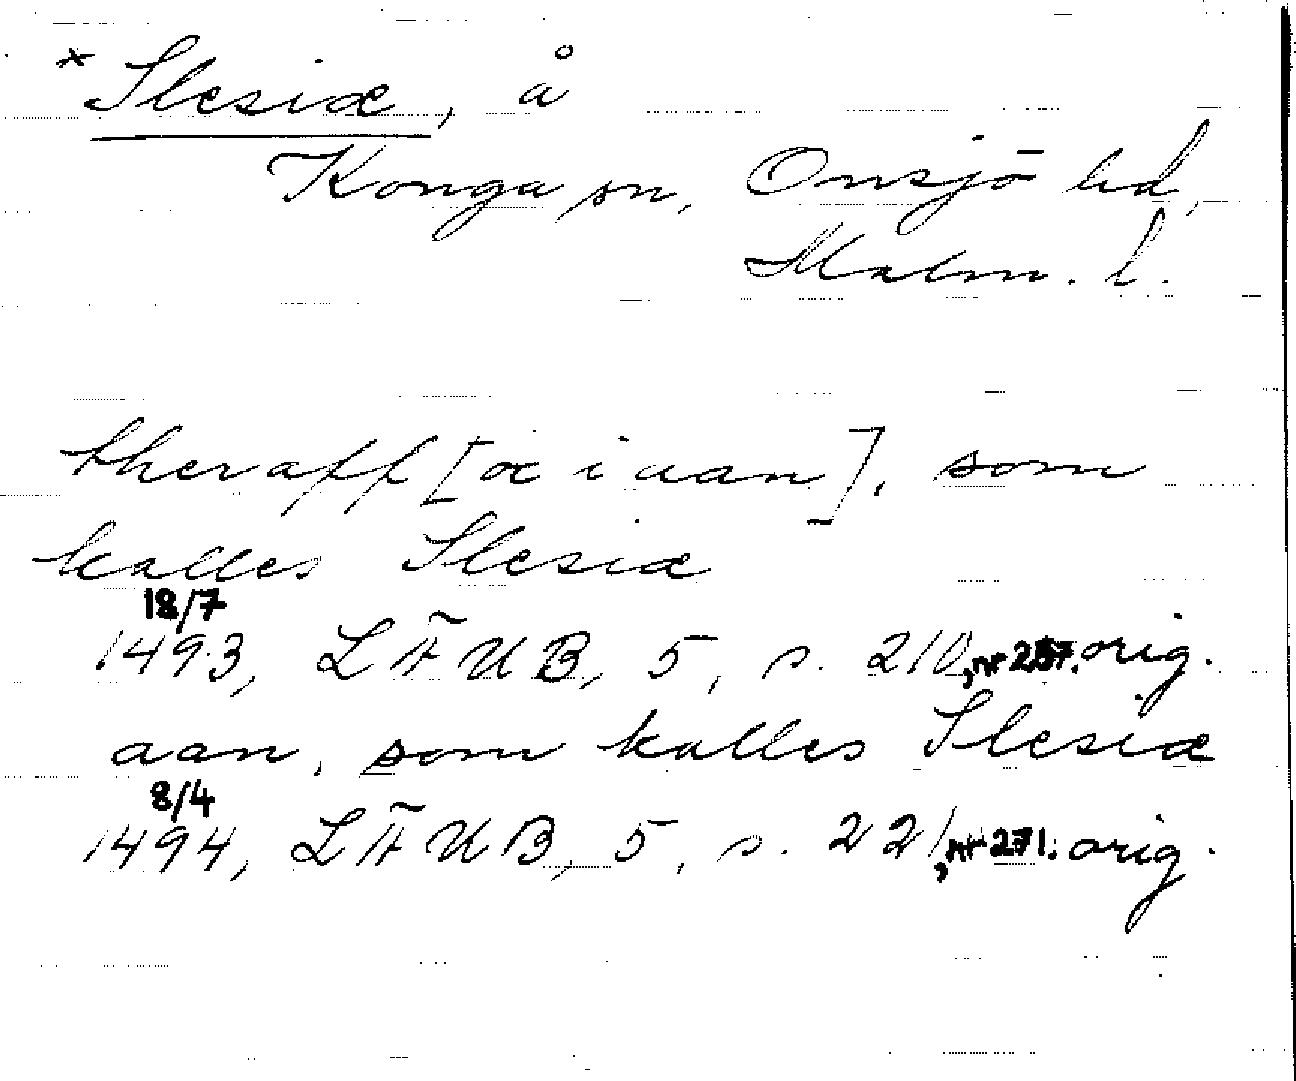 * Slesiæ, å
Konga sn, Onsjö hd,
Malm. l.
theraff [ɔ: i aan], som
kalles Slesiæ
18/7
1493, LÄUB, 5, s. 210, nr 257. orig.
aan, som kalles Slesiæ
8/4
1494, LÄUB, 5, s. 221, nr 271. orig.